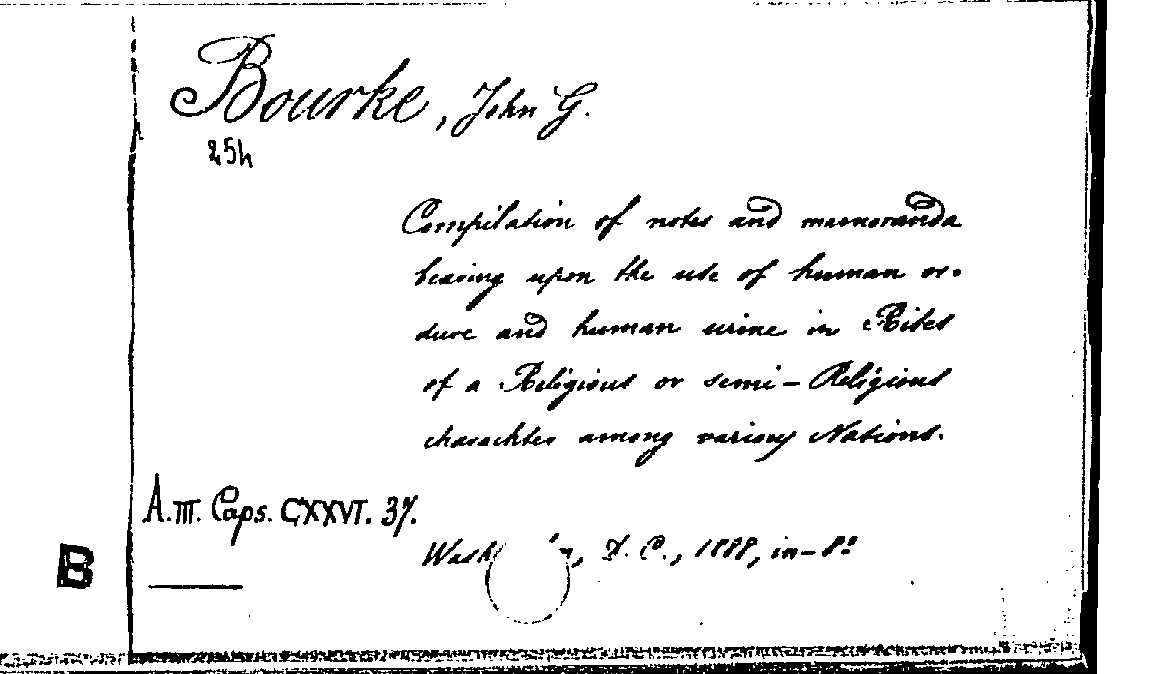 Bourke, John G.
25h
Compilation of notes and memoranda
bearing upon the use of human or-
dure and human urine in Rites
of a Religious or semi-Religious
charachter among various Nations.
A.III. Caps. CXXVI. 37.
D. C., 1888, in-8º
B